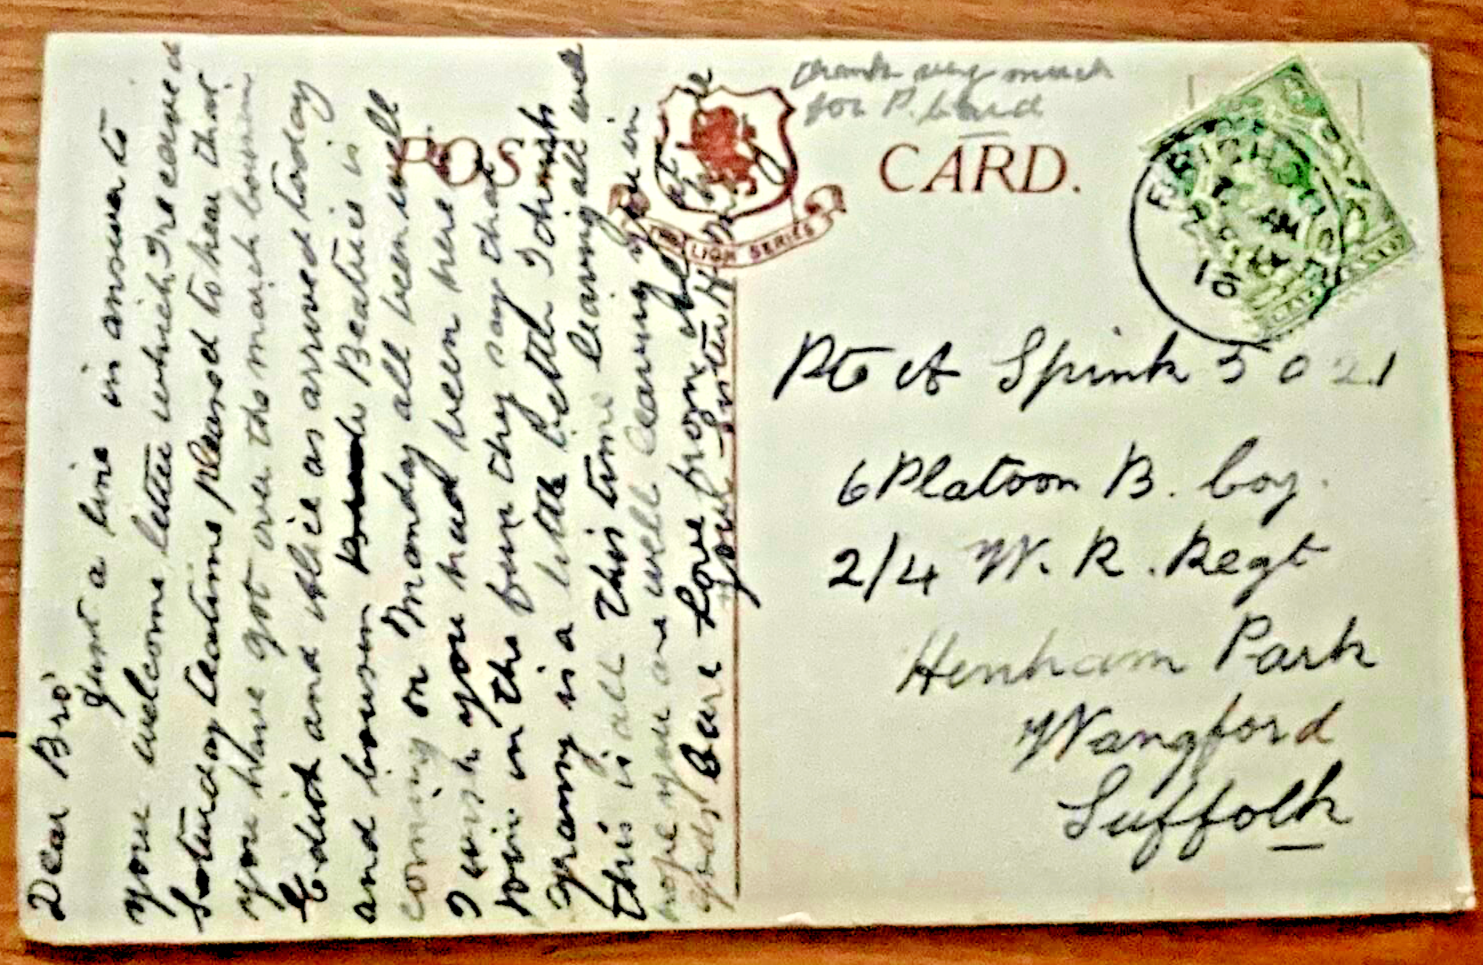 thank very much
for P. Card
POST CARD.
LION SERIES
BRIGHOUSE
16
Pte A Spink 5021
6 Platoon B. Coy.
2/4 W. R. Regt
Henham Park
Wangford
Suffolk
Dear Bro'
Just a line in answer to
your welcome letter which I received
Saturday teatime pleased to hear that
you have got over the march
Edith and Alice as arrived today
and Beatrice is
coming on Monday all been well
I wish you had been here to
join in the fun they say that
Granny is a little better I think
this is all this time leaving all well
hope you are well leaving you in
Gods Care Love from all at
your Sister